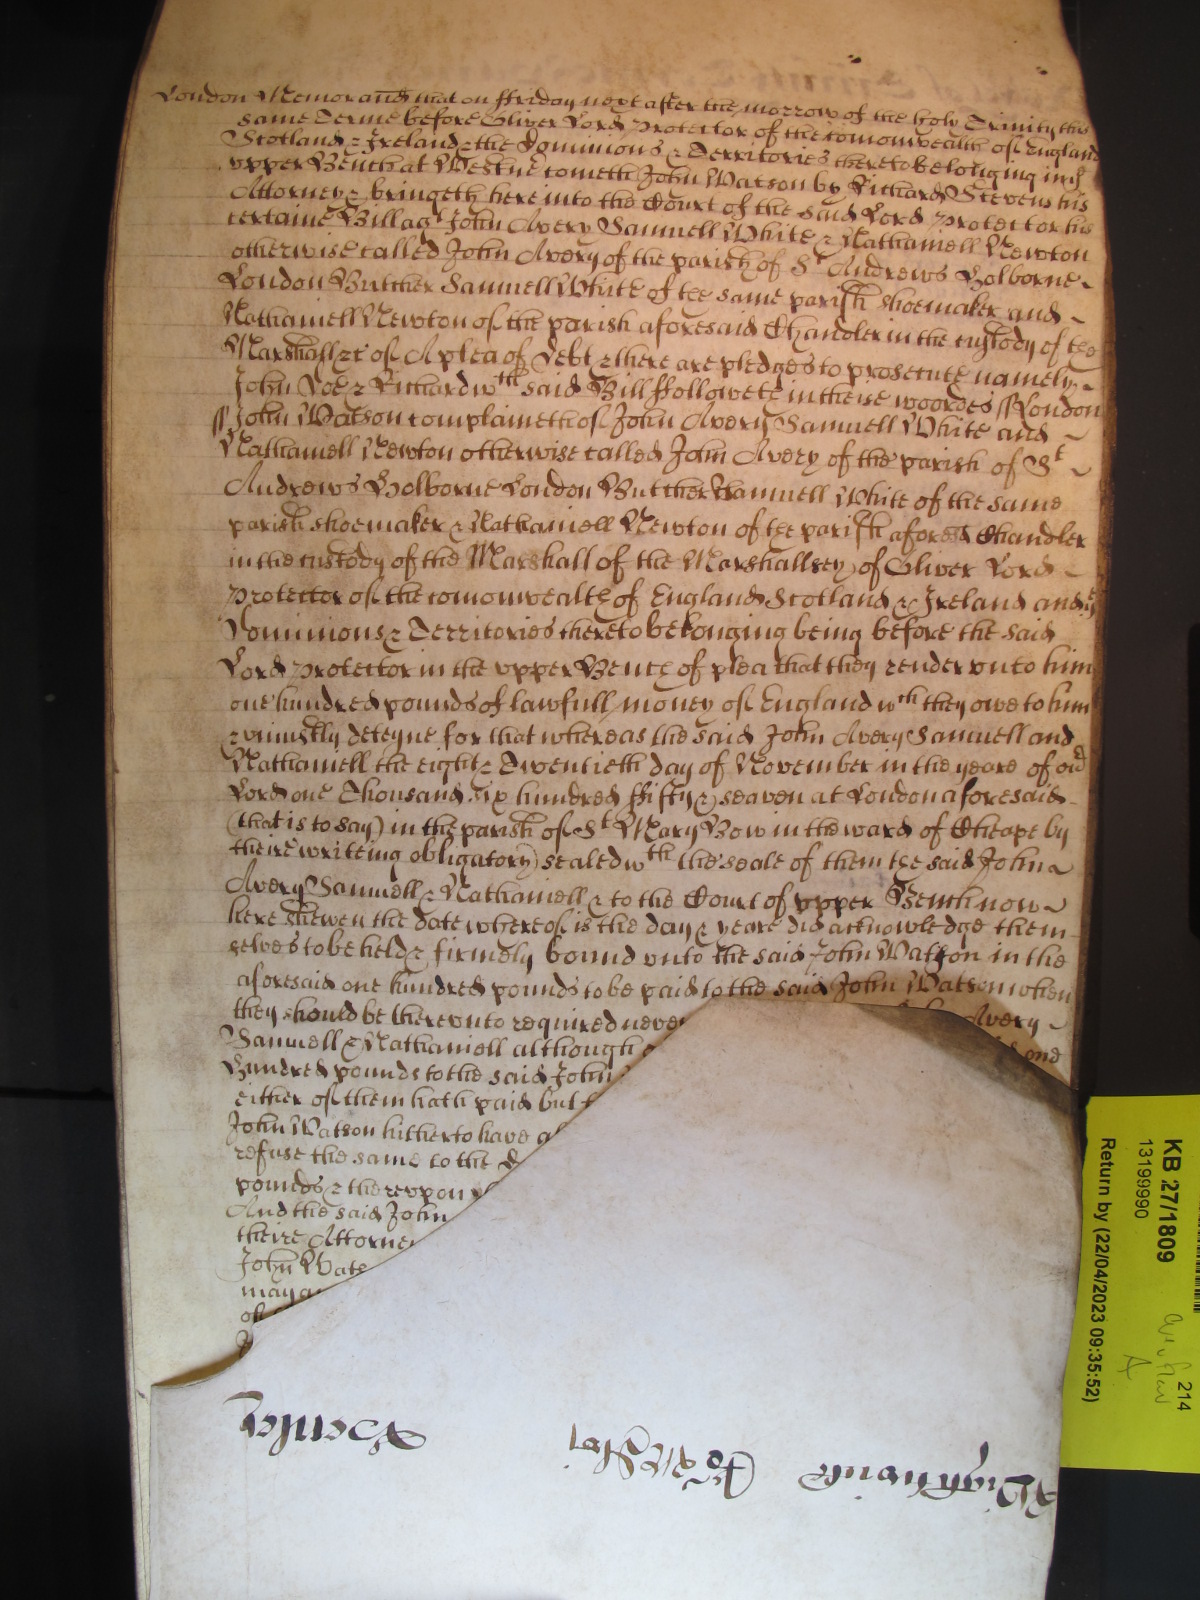 London Memorand that on ffriday next after the morrow of the holy Trinity this
same Terme before Oliver Lord Protector of the comonwealth of England
Scotland & Ireland & the Dominions & Territories thereto belonging in
upper Bench at Westm cometh John Watson by Richard Stevens his
Attorney & bringeth here into the Court of the said Lord Protector his
certaine Bill agt John Avery Samuell White & Nathaniell Newton
otherwise called John Avery of the parish of St Andrews Holborne
London Butcher Samuell White of the same parish shoemaker and
Nathaniell Newton of the parish aforesaid Chandler in the custody of the
Marshall &c of A plea of Debt & there are pledges to prosecute namely
John Doe & Richard wch said Bill ffolloweth in these woordes ss London
ss John Watson complaineth of John Avery Samuell White and
Nathaniell Newton otherwise called John Avery of the parish of St
Andrews Holborne London Butcher Samuell White of the same
parish shoemaker & Nathaniell Newton of the parish aforesd Chandler
in the custody of the Marshall of the Marshallsey of Oliver Lord
Protector of the comonwealth of England Scotland & Ireland and ye
Dominions & Territories thereto belonging being before the said
Lord Protector in the upper Bench of plea that they render unto him
one hundred pounds of lawfull money of England wch they owe to him
& uniustly deteyne for that whereas the said John Avery Samuell and
Nathaniell the eight & Twentieth day of November in the yeare of our
Lord one Thousand six hundred ffifty & seaven at London aforesaid
(that is to say) in the parish of St Mary Bow in the ward of Cheape by
theire writeing obligatory sealed wth the seale of them the said John
Avery Samuell & Nathaniell & to the Court of upper Bench now
here shewen the date whereof is the day & yeare did acknowledge them
selves to be held & firmely bound unto the said John Watson in the
aforesaid one hundred pounds to be paid to the said John Watson when
they should be thereunto required never Avery
Samuell & Nathaniell although one
Hundred pounds to the said John
either of them hath paid but
John Watson hitherto have
refuse the same to the
pounds & thereupon
And the said John
theire Attorney
John Wats
may
of
Henley
Wightwick
KB 27/1809
13199990
214
Return by (22/04/2023 09:35:52)